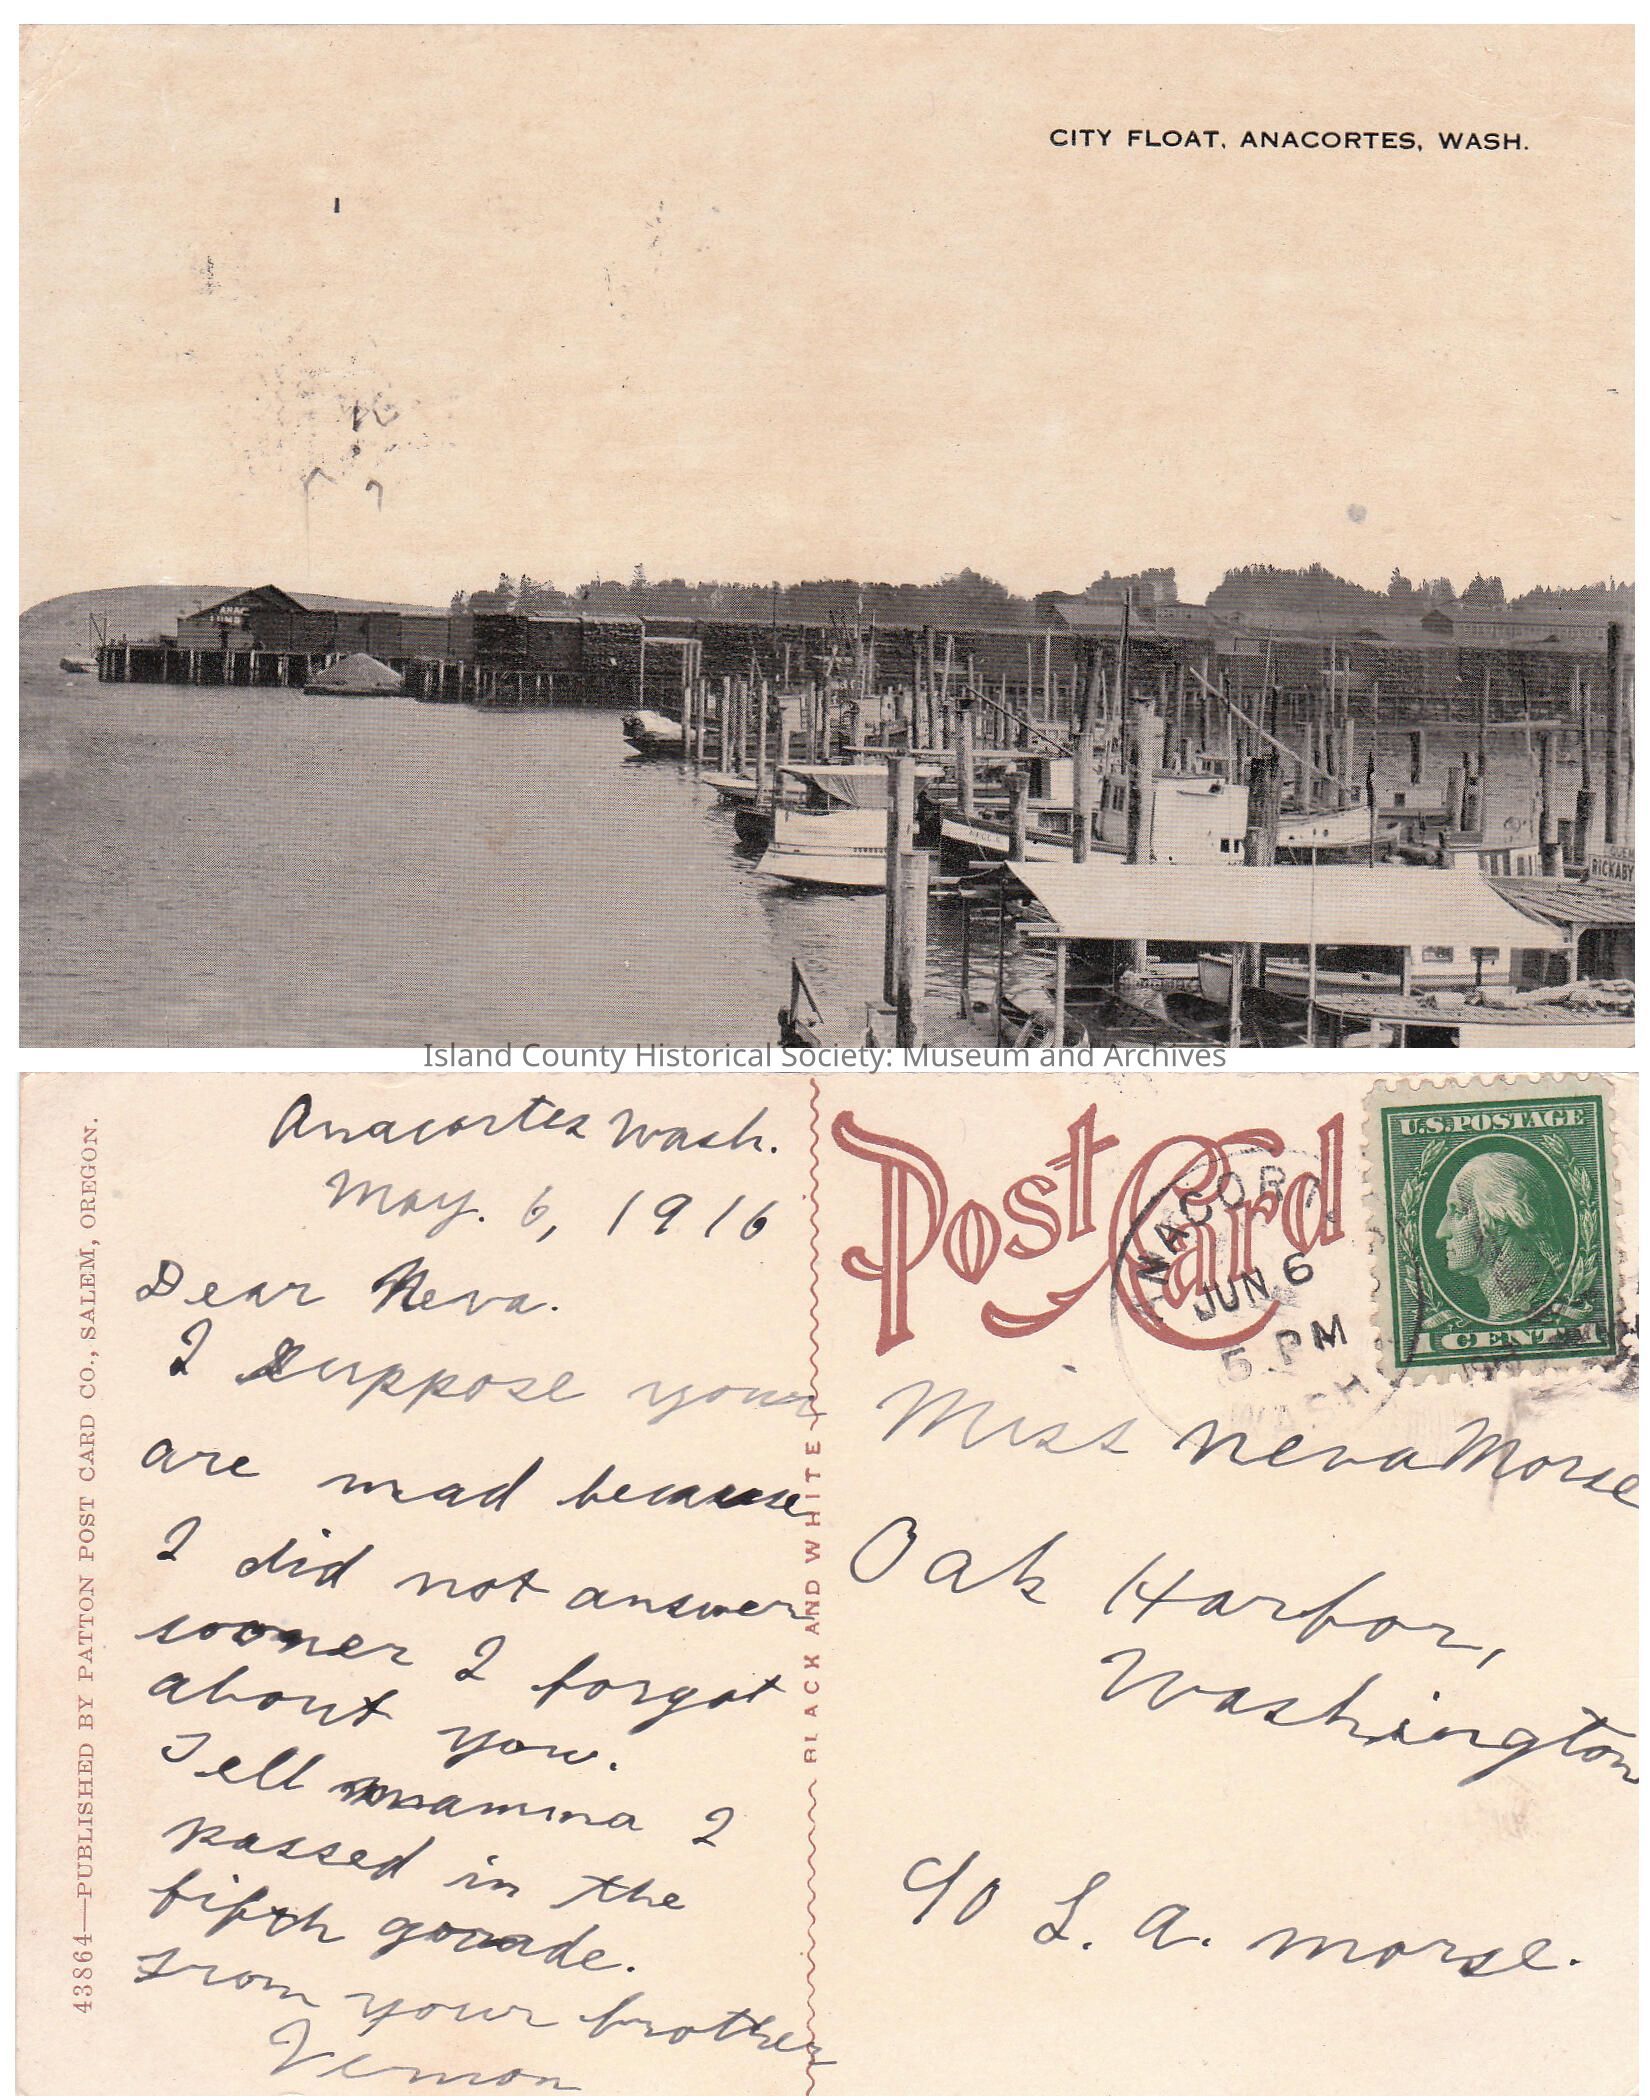 CITY FLOAT, ANACORTES, WASH.
RICKABY
Island County Historical Society: Museum and Archives
43864—PUBLISHED BY PATTON POST CARD CO., SALEM, OREGON.
Anacortes Wash.
May. 6, 1916
Dear Neva.
I suppose your
are mad because
I did not answer
sooner I forgot
about you.
Tell mamma I
passed in the
fifth grade.
From your brother
Vernon
BLACK AND WHITE
Post Card
ANACORT
JUN 6
5 PM
WASH
U.S. POSTAGE
1 CENT 1
Miss Neva Morse
Oak Harbor,
Washington
c/o L. A. Morse.